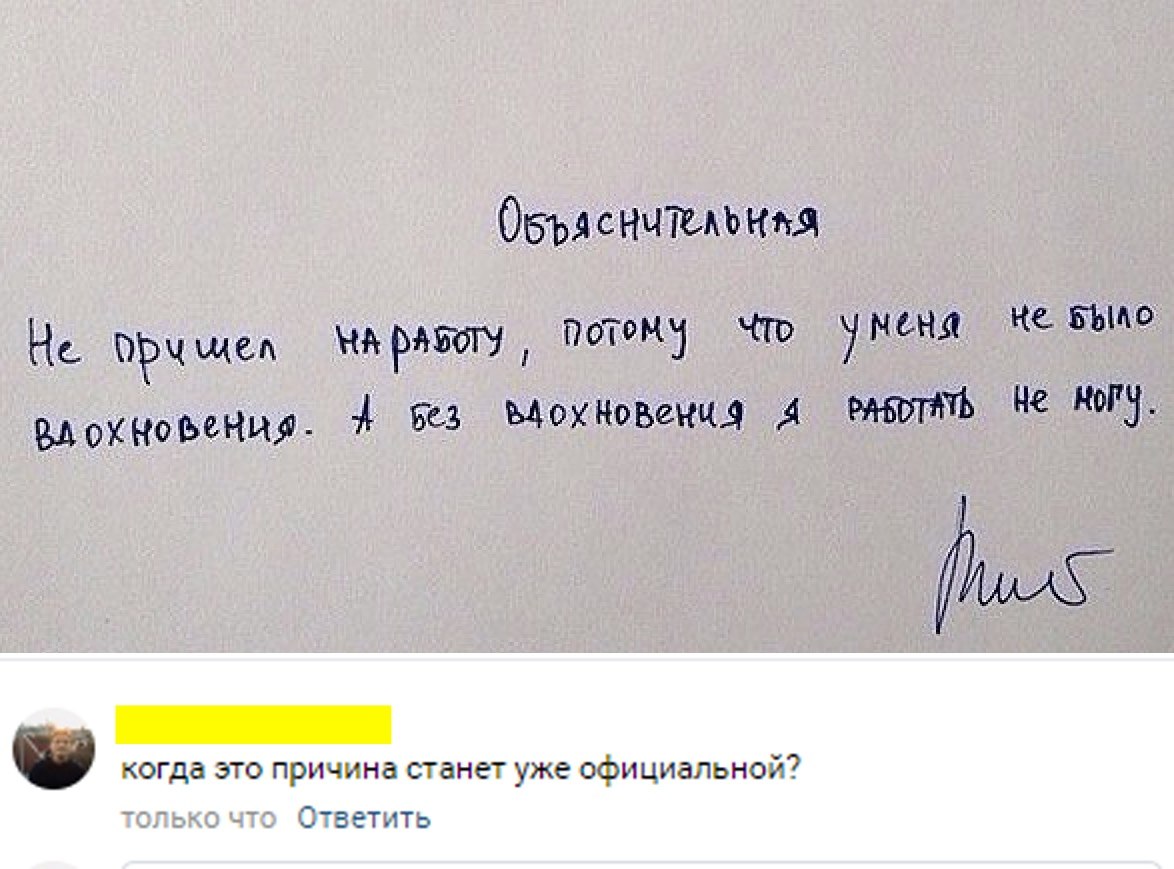 Объяснительная
Не пришел на работу, потому что у меня не было
вдохновения. А без вдохновения я работать не могу.
когда это причина станет уже официальной?
только что Ответить